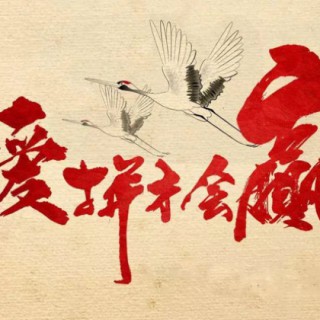 爱拼才会赢